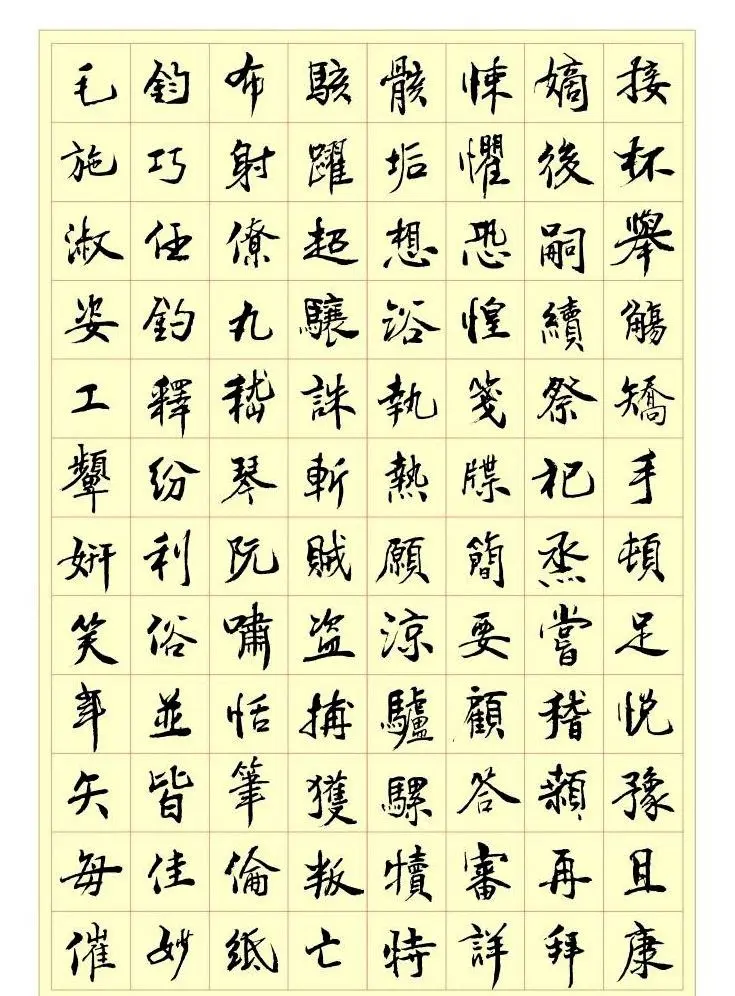 接杯舉觴矯手頓足悅豫且康
嫡後嗣續祭祀烝嘗稽顙再拜
悚懼恐惶箋牒簡要顧答審詳
骸垢想浴執熱願涼驢騾犢特
駭躍超驤誅斬賊盜捕獲叛亡
布射僚丸嵇琴阮嘯恬筆倫紙
鈞巧任釣釋紛利俗並皆佳妙
毛施淑姿工顰妍笑年矢每催